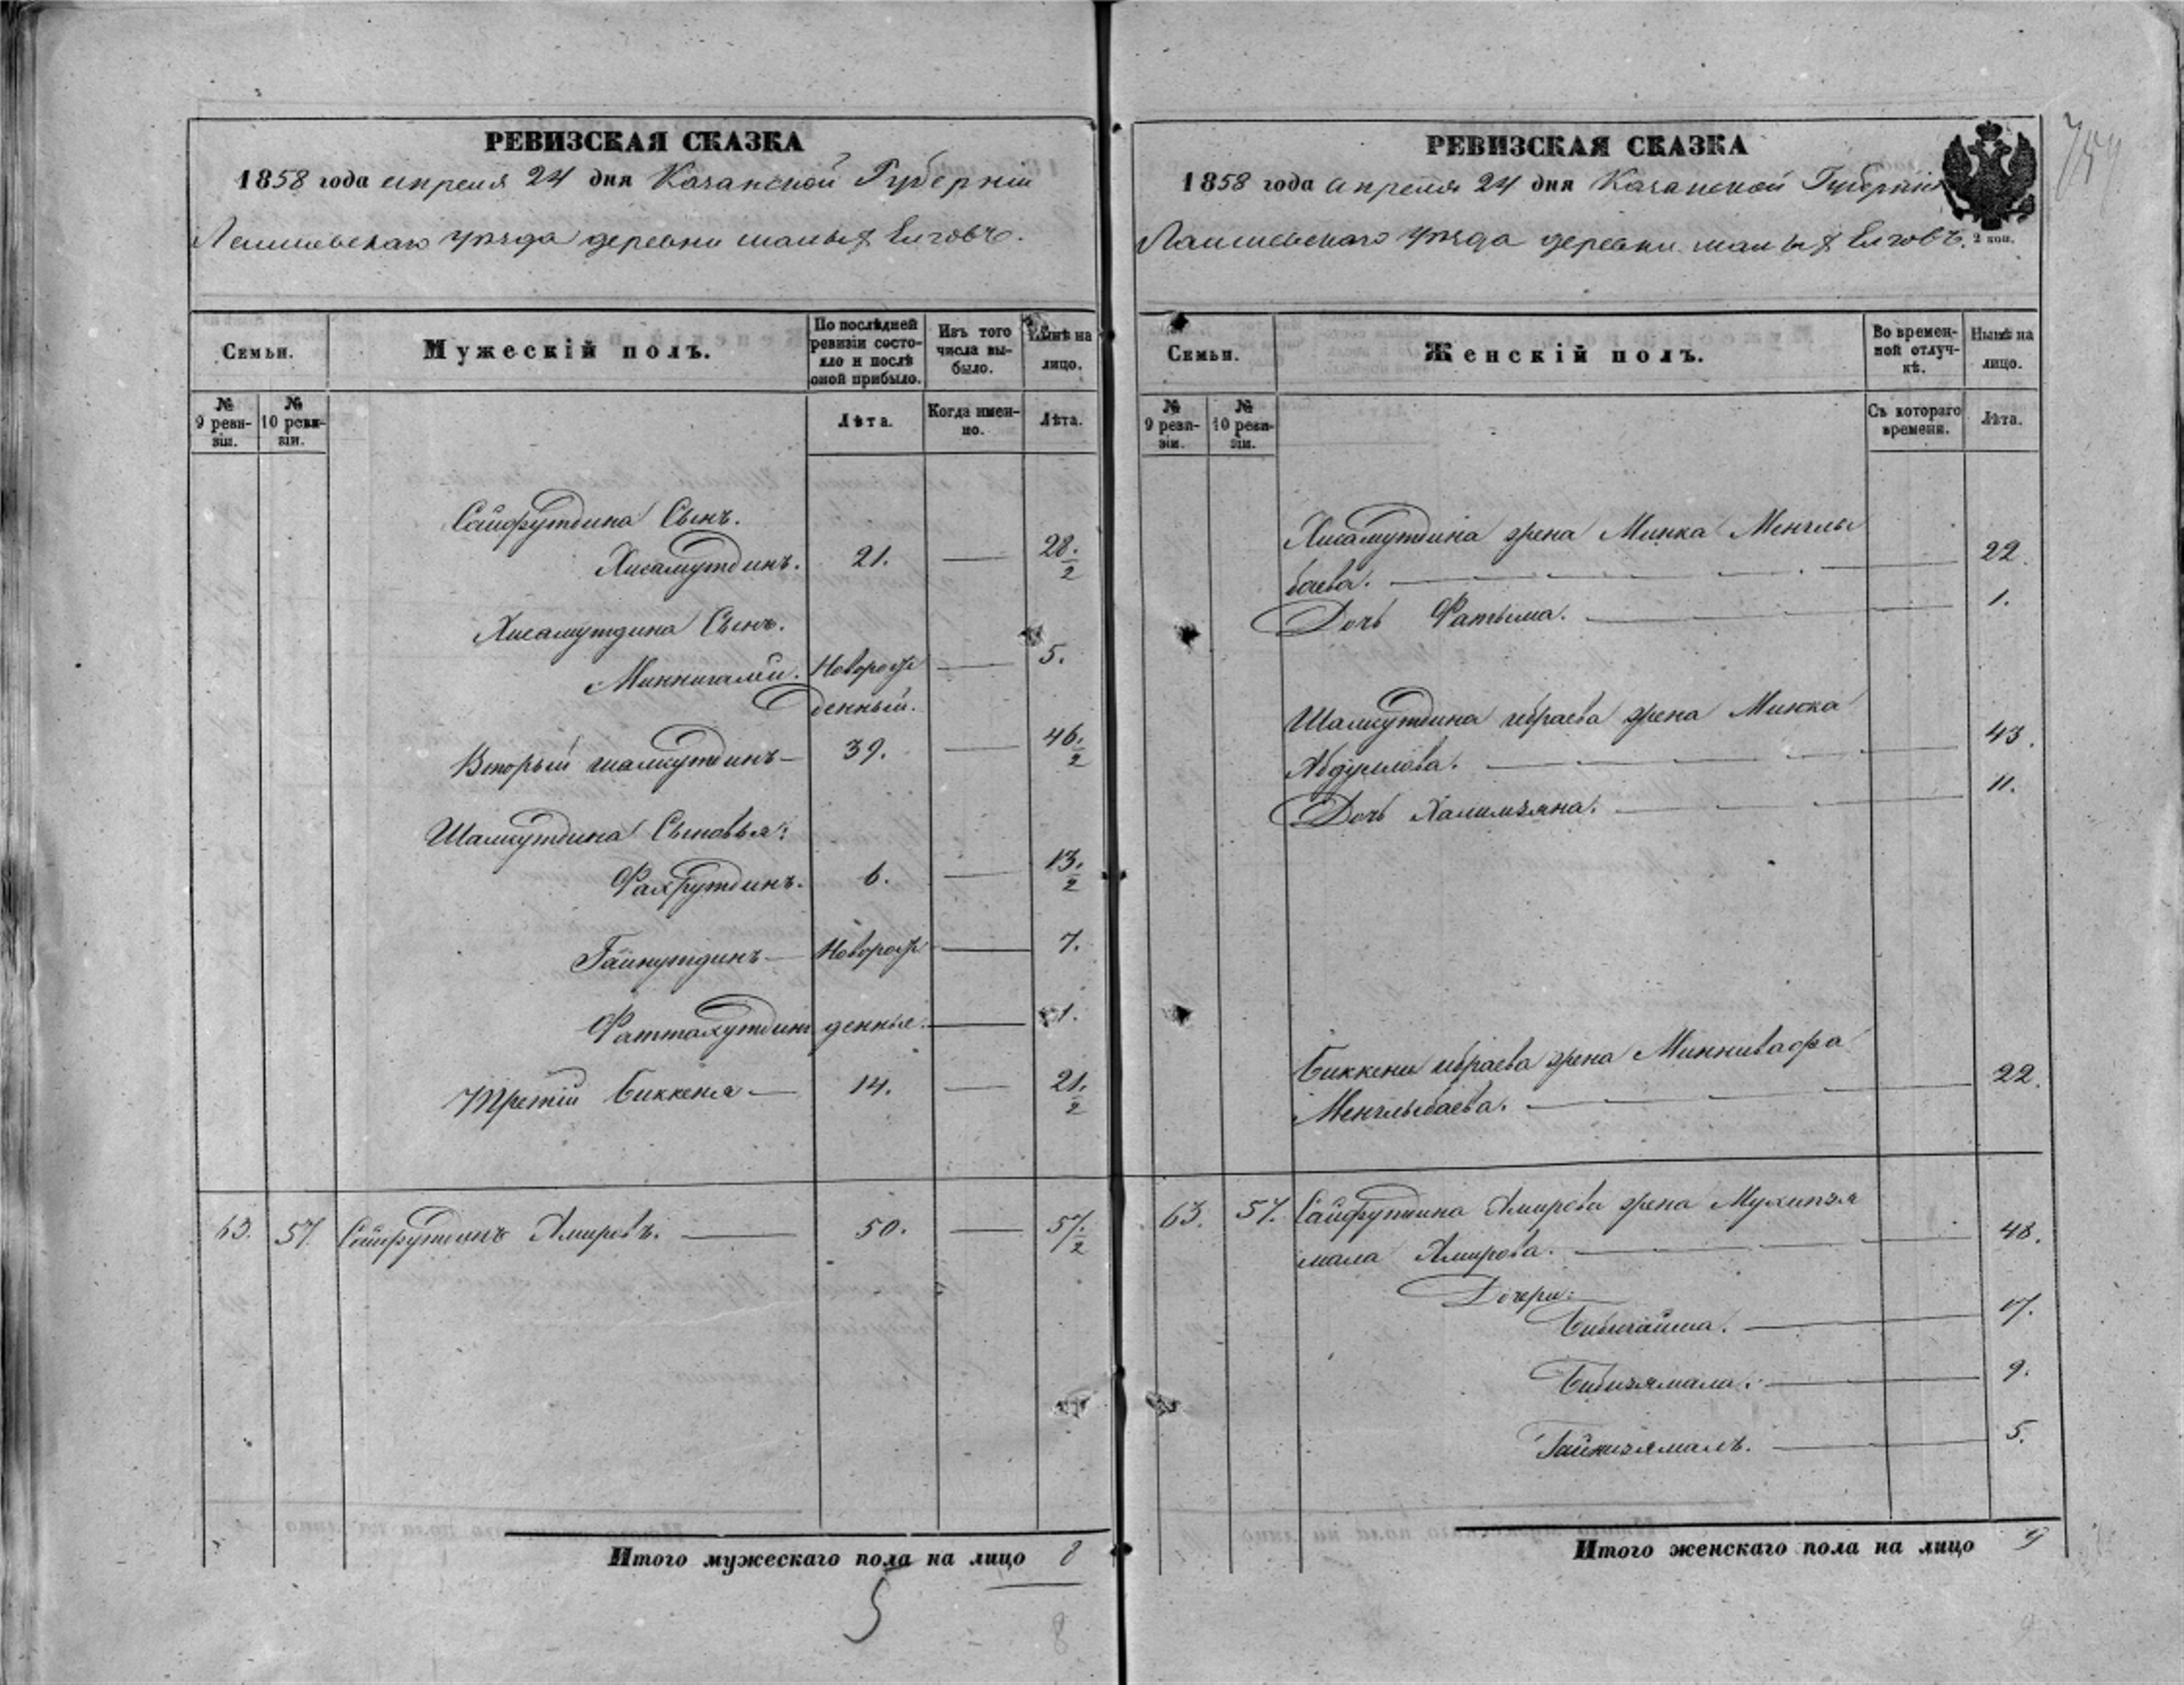 РЕВИЗСКАЯ СКАЗКА
1858 года апреля 24 дня Казанской Губерніи
Лаишевскаго уѣзда деревни малыхъ Елговъ.
Семьи.
Мужескій полъ.
По послѣдней ревизіи состояло и послѣ оной прибыло.
Изъ того числа выбыло.
Нынѣ на лицо.
№ 9 ревизіи.
№ 10 ревизіи.
Лѣта.
Когда именно.
Лѣта.
Сайфутдина Сынъ.
Хисамутдинъ. 21. — 28. 2
Хисамутдина Сынъ.
Миннигалей. Новорож — 5.
денный.
Вторый шамсутдинъ — 39. — 46. 2
Шамсутдина Сыновья:
Фахрутдинъ. 6. — 13. 2
Гайнутдинъ — Новорож — 7.
Фаттахутдинъ денные. — 1.
Третій Биккеня — 14. — 21. 2
63. 57. Сайфутдинъ Амировъ. — 50. — 57. 2
Итого мужескаго пола на лицо 8
5
8
РЕВИЗСКАЯ СКАЗКА
1858 года апреля 24 дня Казанской Губерніи
Лаишевскаго уѣзда деревни малыхъ Елговъ.
2 коп.
Семьи.
Женскій полъ.
Во временной отлучкѣ.
Нынѣ на лицо.
№ 9 ревизіи.
№ 10 ревизіи.
Съ котораго времени.
Лѣта.
Хисамутдина жена Минка Менглы
баева. — 22.
Дочь Фатыма. — 1.
Шамсутдина ибраева жена Минка
Абдуллова. — 43.
Дочь Халимзяна. — 11.
Биккени ибраева жена Миннивафа
Менглыбаева. — 22.
63. 57. Сайфутдина Амирова жена Мухипзя
мала Амирова. — 48.
Дочери:
Бибигайша. — 17.
Бибизямала. — 9.
Гайнизямалъ. — 5.
Итого женскаго пола на лицо 9